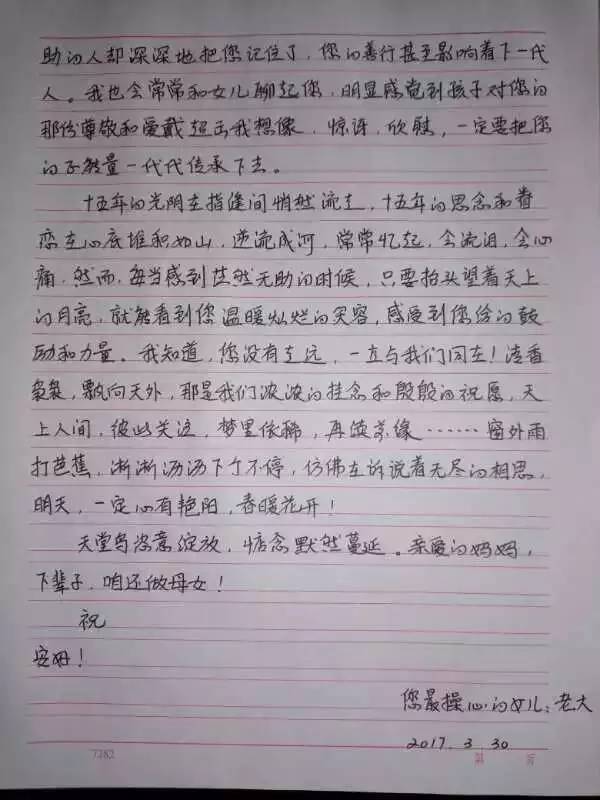 助的人却深深地把您记住了，您的善行甚至影响着下一代
人。我也会常常和女儿聊起您，明显感觉到孩子对您的
那份尊敬和爱戴超出我想像，惊讶，欣慰，一定要把您
的正能量一代代传承下去。
十五年的光阴在指缝间悄然流走，十五年的思念和眷
恋在心底堆积如山，逆流成河，常常忆起，会流泪，会心
痛，然而，每当感到茫然无助的时候，只要抬头望着天上
的月亮，就能看到您温暖灿烂的笑容，感受到您给的鼓
励和力量。我知道，您没有走远，一直与我们同在！清香
袅袅，飘向天外，那是我们浓浓的挂念和殷殷的祝愿，天
上人间，彼此关注，梦里依稀，再续亲缘……窗外雨
打芭蕉，淅淅沥沥下个不停，仿佛在诉说着无尽的相思，
明天，一定会有艳阳，春暖花开！
天堂鸟恣意绽放，惦念默然蔓延。亲爱的妈妈，
下辈子，咱还做母女！
祝
安好！
您最操心的女儿：老大
2017.3.30
7282 第 页